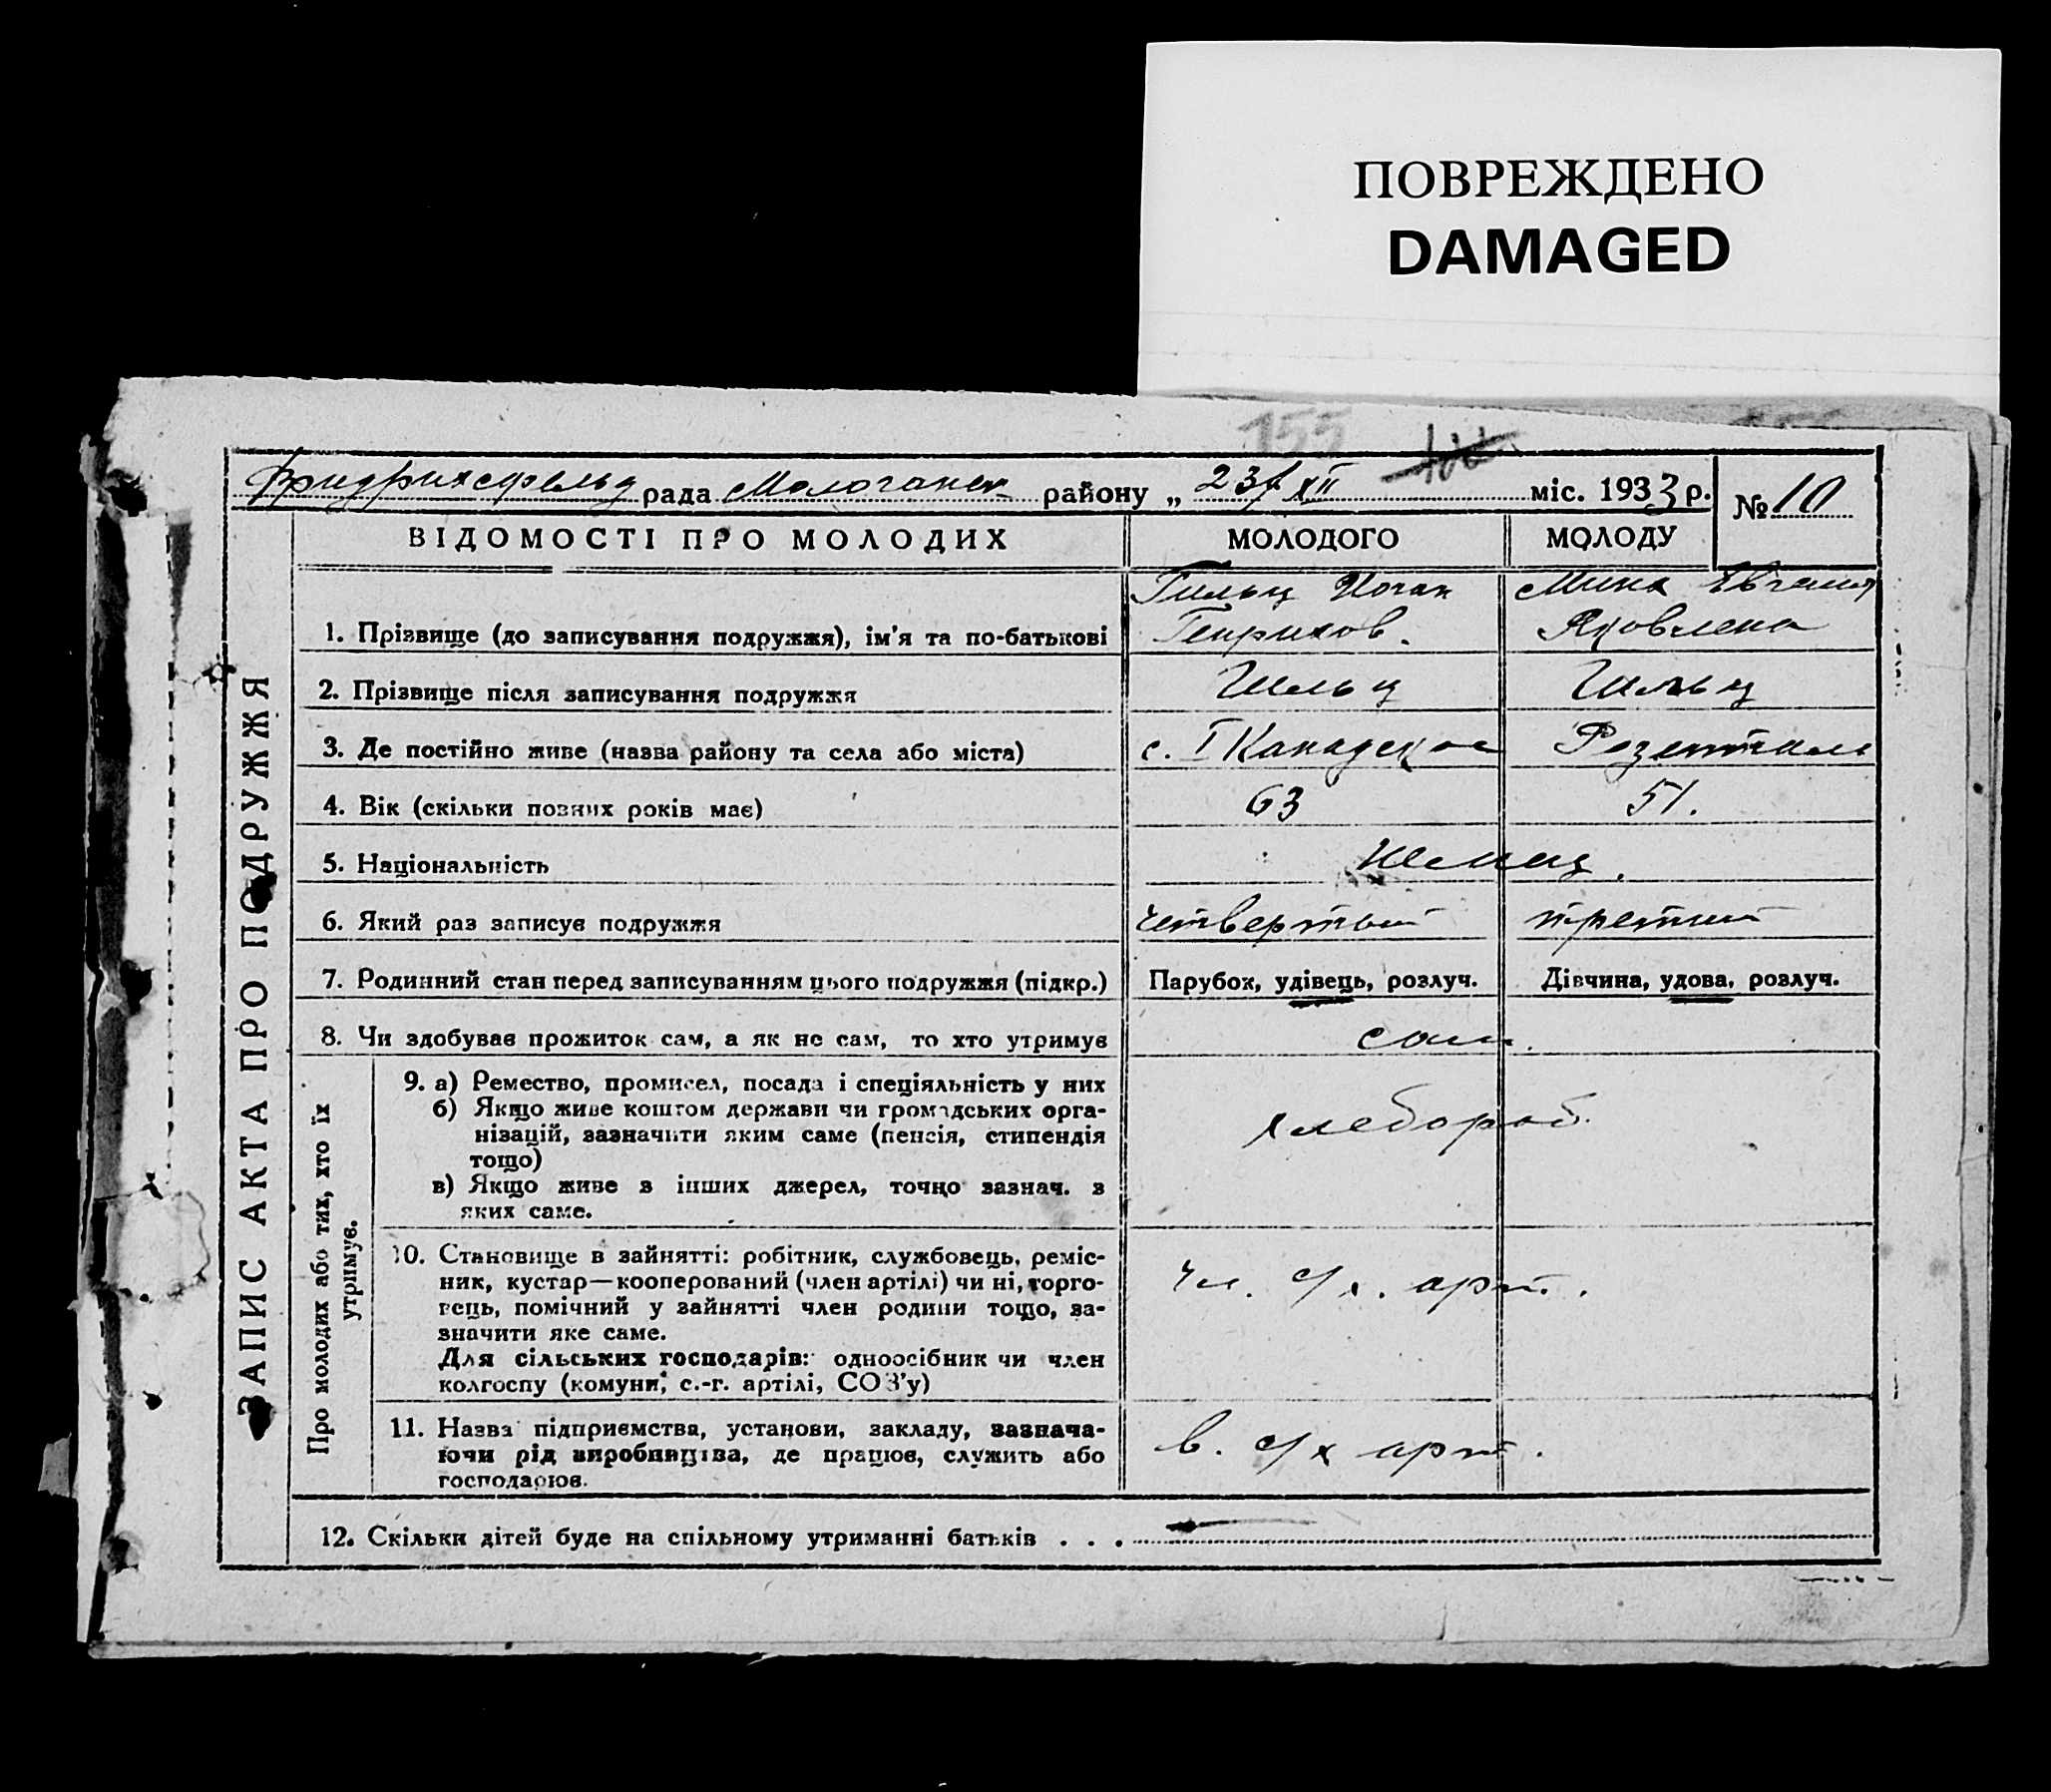 ПОВРЕЖДЕНО
DAMAGED
155
Фридрихсфельд рада Молочанск району „ 23/XII міс. 1933 р. № 10
ЗАПИС АКТА ПРО ПОДРУЖЖЯ
ВІДОМОСТІ ПРО МОЛОДИХ МОЛОДОГО МОЛОДУ
1. Прізвище (до записування подружжя), ім'я та по-батькові Гильц Иоган Генрихов. Яковлена
2. Прізвище після записування подружжя Гильц Гильц
3. Де постійно живе (назва району та села або міста) с. I Канадское Розенталь
4. Вік (скільки повних років має) 63 51.
5. Національність немец.
6. Який раз записує подружжя четвертый третий
7. Родинний стан перед записуванням цього подружжя (підкр.) Парубок, удівець, розлуч. Дівчина, удова, розлуч.
8. Чи здобуває прожиток сам, а як не сам, то хто утримує сам.
Про молодих або тих, хто їх
утримує.
9. а) Ремество, промисел, посада і спеціяльність у них
б) Якщо живе коштом держави чи громадських орга-
нізацій, зазначити яким саме (пенсія, стипендія
тощо)
в) Якщо живе з інших джерел, точно зазнач. з
яких саме.
хлебороб.
10. Становище в зайнятті: робітник, службовець, реміс-
ник, кустар—кооперований (член артілі) чи ні, торго-
вець, помічний у зайнятті член родини тощо, за-
значити яке саме.
Для сільських господарів: одноосібник чи член
колгоспу (комуни, с.-г. артілі, СОЗ'у)
чл. с/х. арт.
11. Назва підприємства, установи, закладу, зазнача-
ючи рід виробництва, де працює, служить або
господарює.
в. с/х арт.
12. Скільки дітей буде на спільному утриманні батьків . . . —